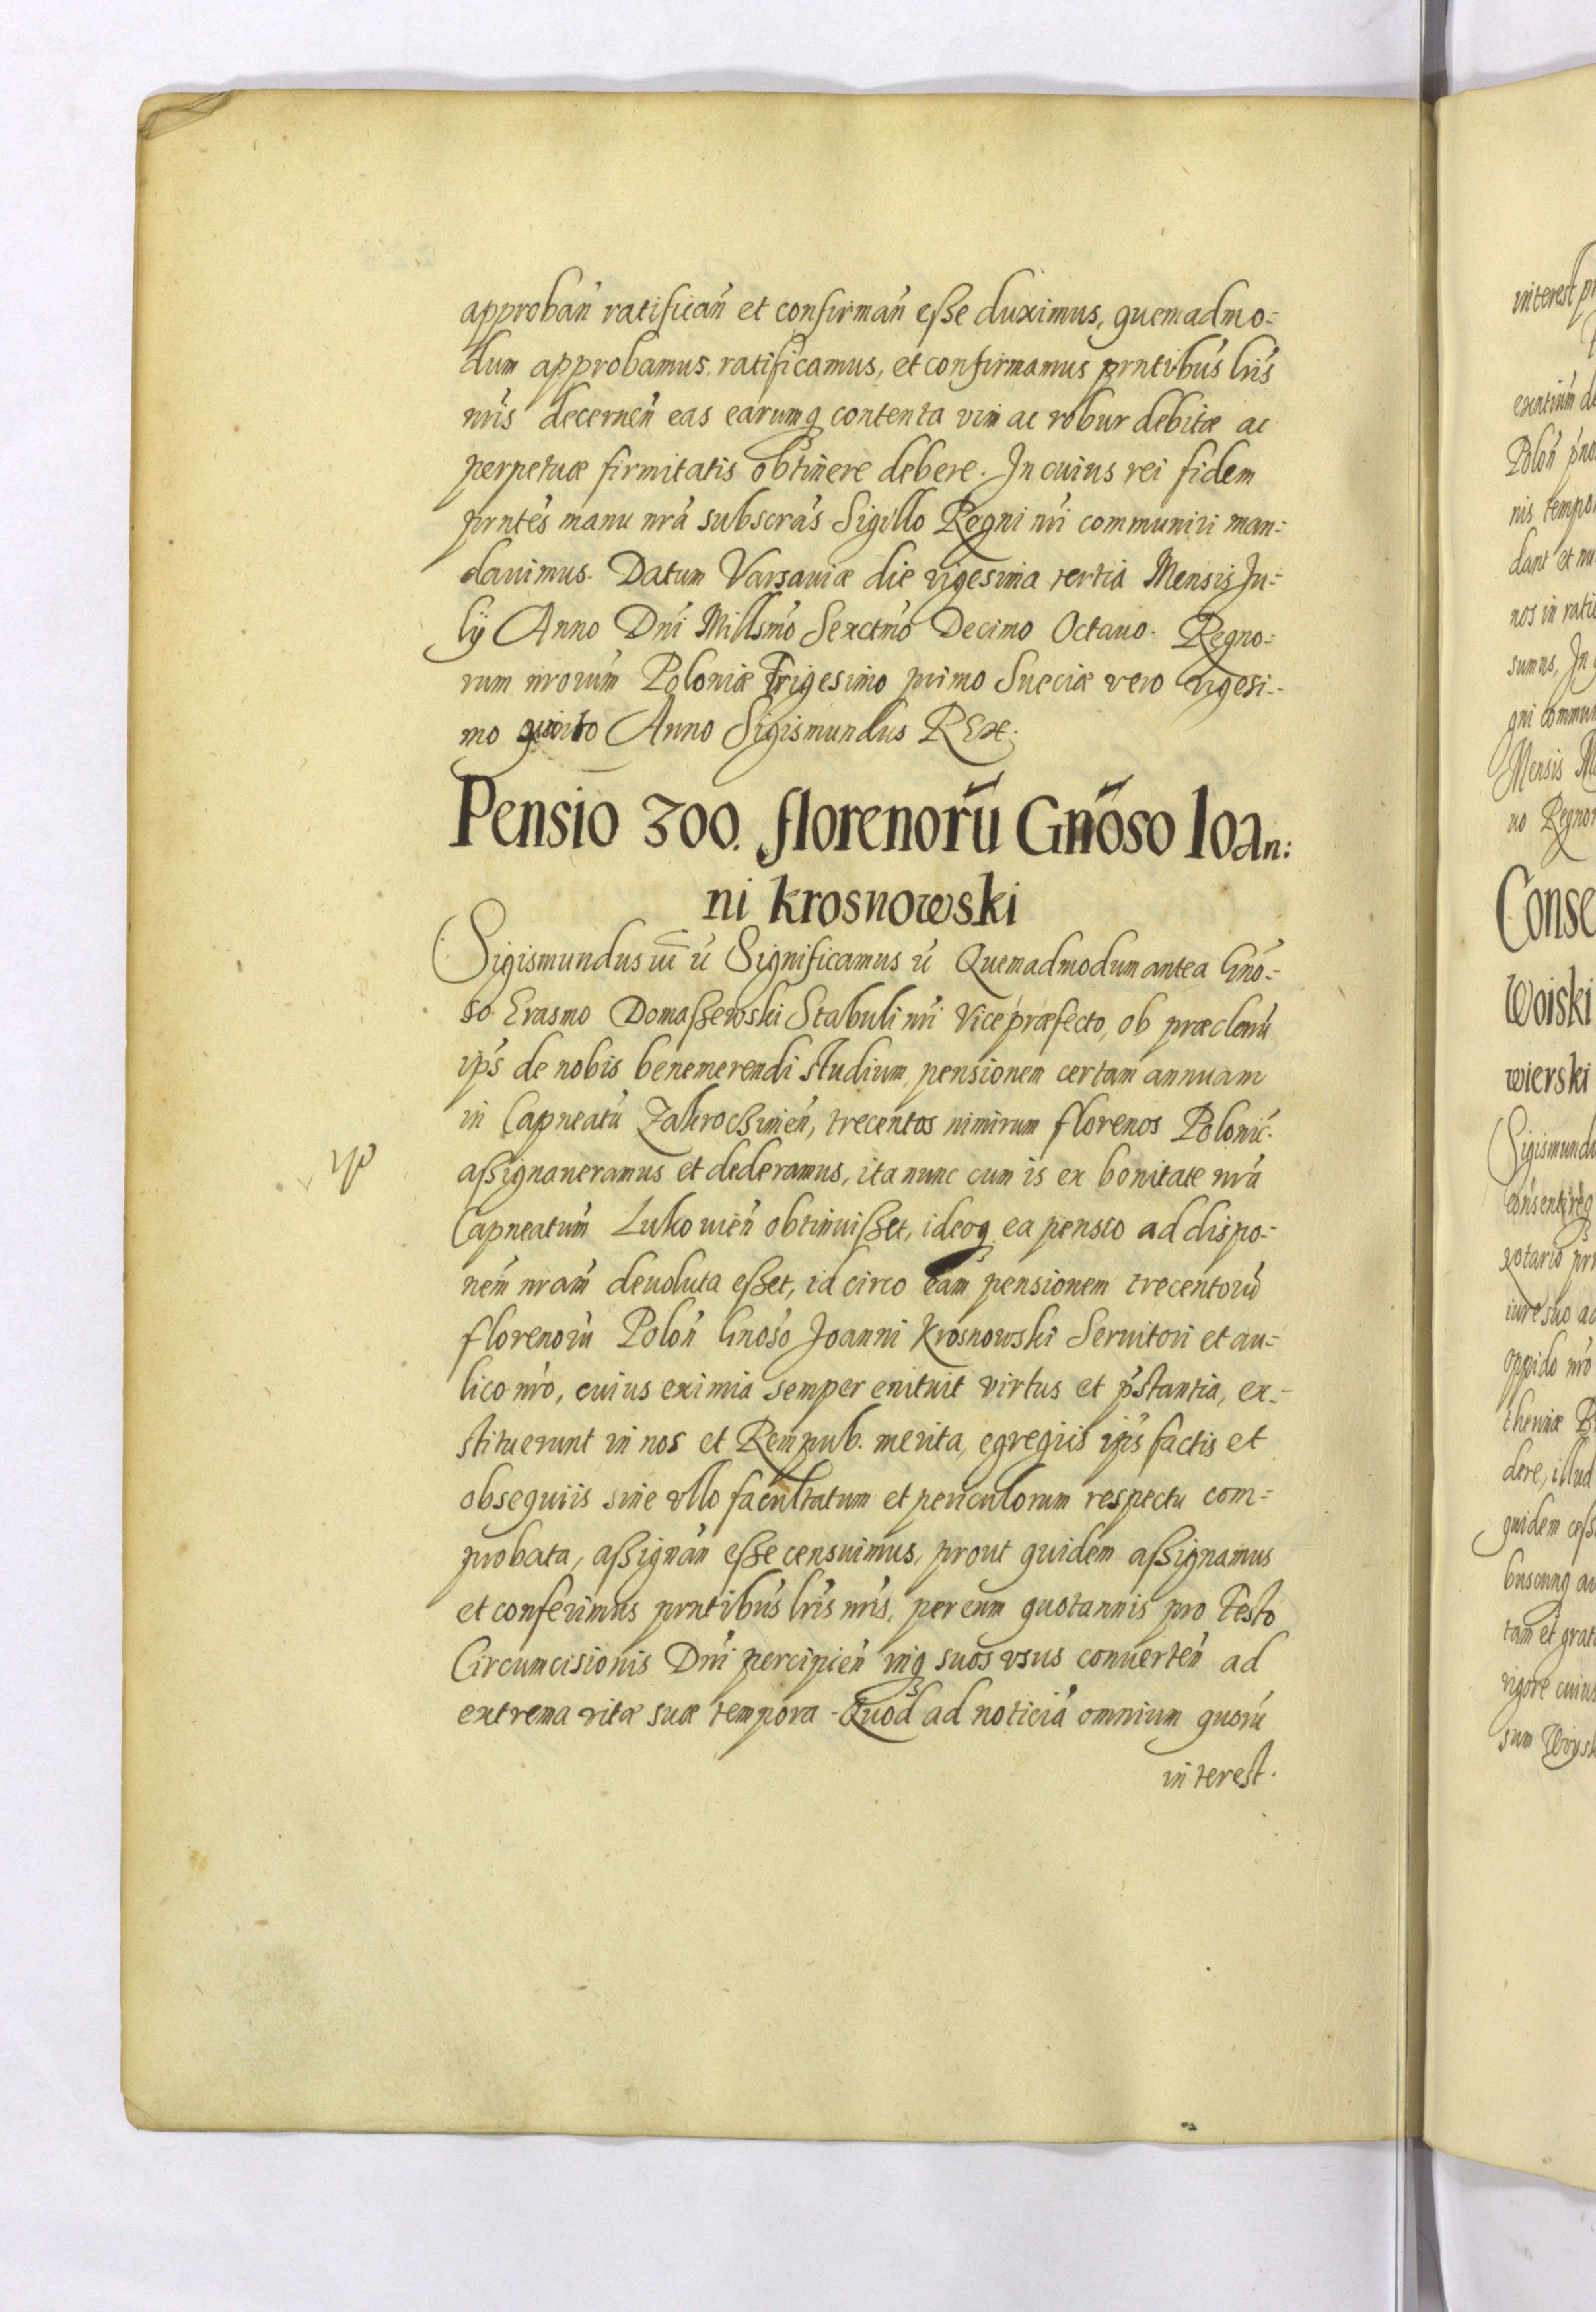 approbań ratificań et confirmań eſse duximus, quemadmo=
dum approbamus ratificamus, et confirmamus prntibus lris
nris decerneń eas earumq contenta vim ac robur debitæ ac
perpetuæ firmitatis obtinere debere. In cuius rei fidem
prntes manu nra subscras Sigillo Regni nri communiri man=
dauimus. Datum Varsauiæ die vigesima tertia Mensis Ju=
lÿ Anno Dni Millsmo Sexctmo Decimo Octauo. Regno=
rum nrorum Poloniæ Trigesimo primo Sueciæ vero vigesi=
mo quinto Anno Sigismundus REx.
Pensio 300. florenorū Gnoso Ioan:
ni krosnowski
Sigismundus III ú Significamus ú Quemadmodum antea Gno=
so Erasmo Domaſzewski Stabuli nri Vicepræfecto, ob præclarú
ips de nobis benemerendi studium, pensionem certam annuam
in Capneatú Zakroczimeń, trecentos nimirum florenos Polonic.
aſsignaueramus et dederamus, ita nunc cum is ex bonitate nra
Capneatum Lukouień obtinuiſset, ideoq ea pensio ad dispo=
nem nram deuoluta eſset, id circo eam pensionem trecentorú
florenorú Poloń Gnoso Joanni Krosnowski Seruitori et au=
lico nro, cuius eximia semper enituit virtus et pstantia, ex=
stituerunt in nos et Rempub. merita, egregiis ips factis et
obsequiis sine vllo facultatum et periculorum respectu com=
probata, aſsignań eſse censuimus, prout quidem aſsignamus
et conferimus prntibus lris nris, per eum quotannis pro Festo
Circumcisionis Dni percipień inq suos vsus conuerteń ad
extrema vitæ suæ tempora. Quod ad noticiá omnium quorú
interest.
interest
Poloń
nis
dant et
nos in
sumus,
Mensis
Conse
Woiski
wierski
Sigismund
iure suo
oppido nro
dere, illud
quidem
tam et
vigore cuius
sum